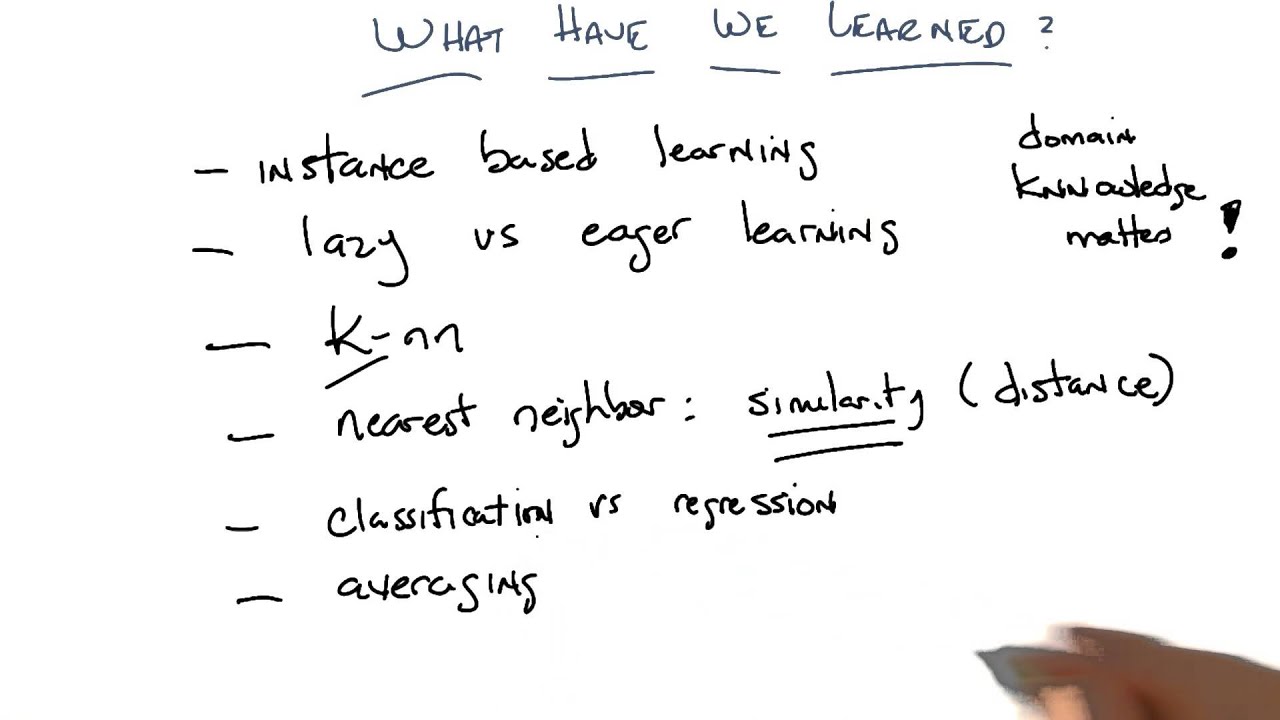 WHAT HAVE WE LEARNED?
– instance based learning
– lazy vs eager learning
– k-nn
– nearest neighbor: similarity (distance)
– classification vs regression
– averaging
domain
knnowledge
matters!